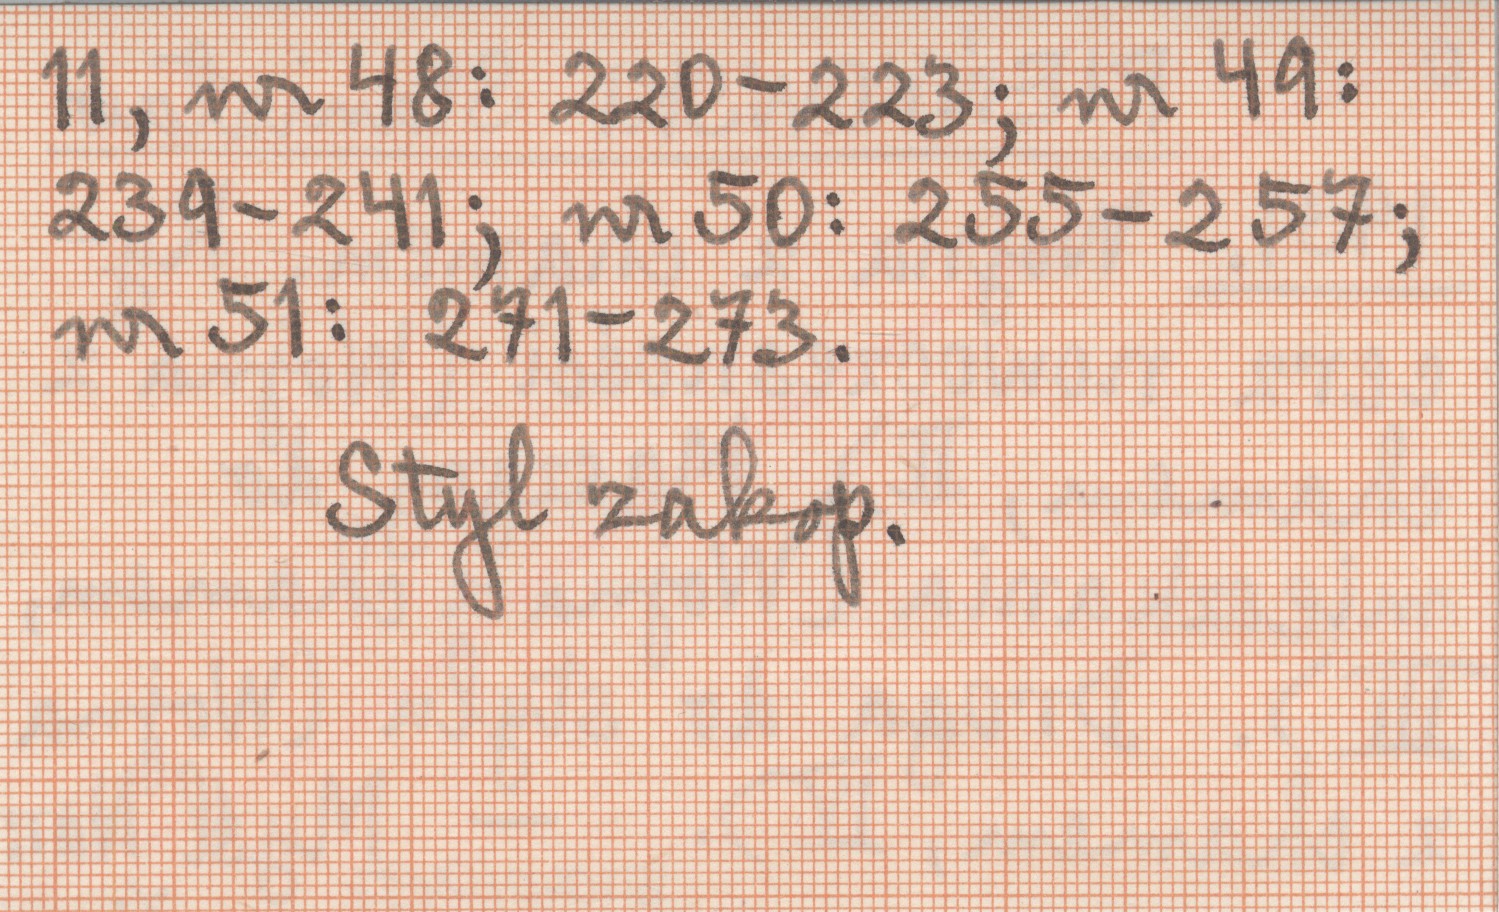 11, nr 48: 220-223; nr 49:
239-241; nr 50: 255-257;
nr 51: 271-273.
Styl zakop.